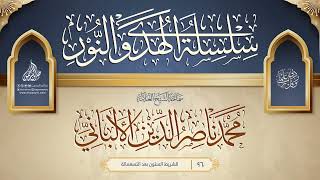 سلسلة الهدى والنور
سماحة الشيخ العلامة
محمد ناصر الدين الألباني
٩٦
الشريط الستون بعد التسعمائة